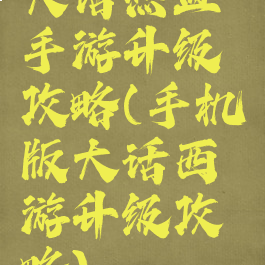 大话热血
手游升级
攻略(手机
版大话西
游升级攻
略)